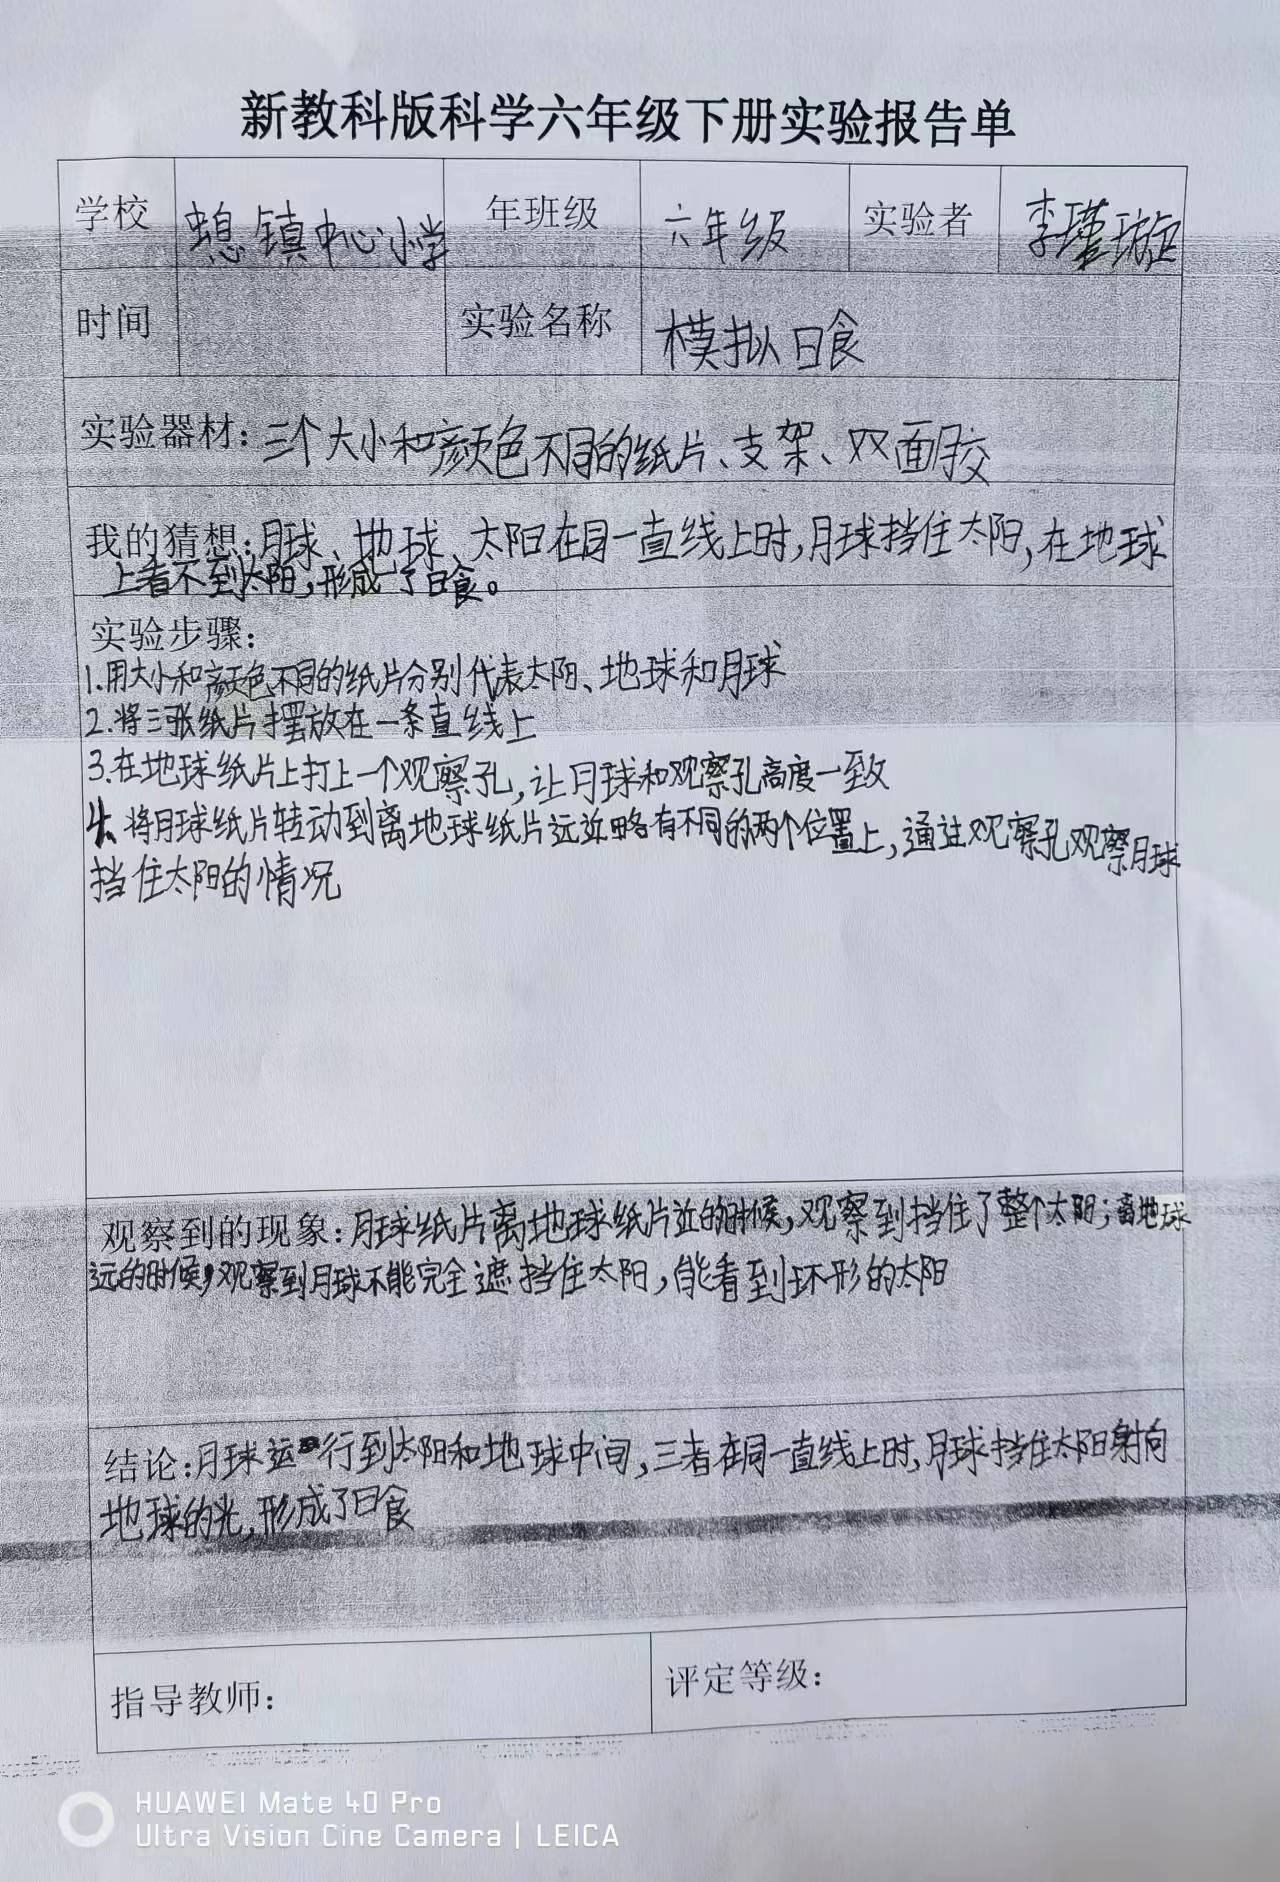 新教科版科学六年级下册实验报告单
学校 镇中心小学 年班级 六年级 实验者 李瑾璇
时间 实验名称 模拟日食
实验器材：三个大小和颜色不同的纸片、支架、双面胶
我的猜想：月球、地球、太阳在同一直线上时，月球挡住太阳，在地球
上看不到太阳，形成了日食。
实验步骤：
1.用大小和颜色不同的纸片分别代表太阳、地球和月球
2.将三张纸片摆放在一条直线上
3.在地球纸片上打上一个观察孔，让月球和观察孔高度一致
4、将月球纸片转动到离地球纸片远近略有不同的两个位置上，通过观察孔观察月球
挡住太阳的情况
观察到的现象：月球纸片离地球纸片近的时候，观察到挡住了整个太阳；离地球
远的时候，观察到月球不能完全遮挡住太阳，能看到环形的太阳
结论：月球运行到太阳和地球中间，三者在同一直线上时，月球挡住太阳射向
地球的光，形成了日食
指导教师： 评定等级：
HUAWEI Mate 40 Pro
Ultra Vision Cine Camera | LEICA